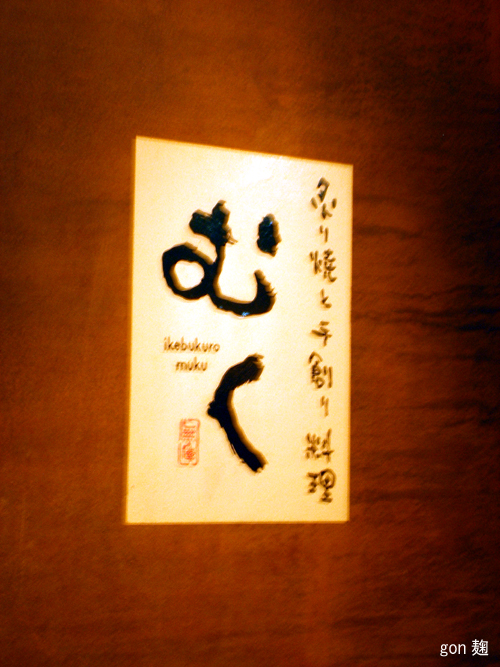 炙り焼と手創り料理
むく
ikebukuro
muku
gon 麹